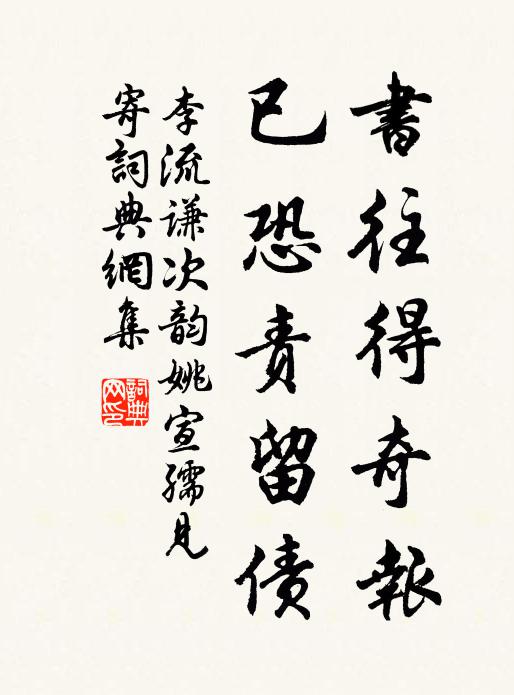 書往得奇報
已恐責留債
李流謙次韵姚宣孺見
寄詞典網集
詞典網印